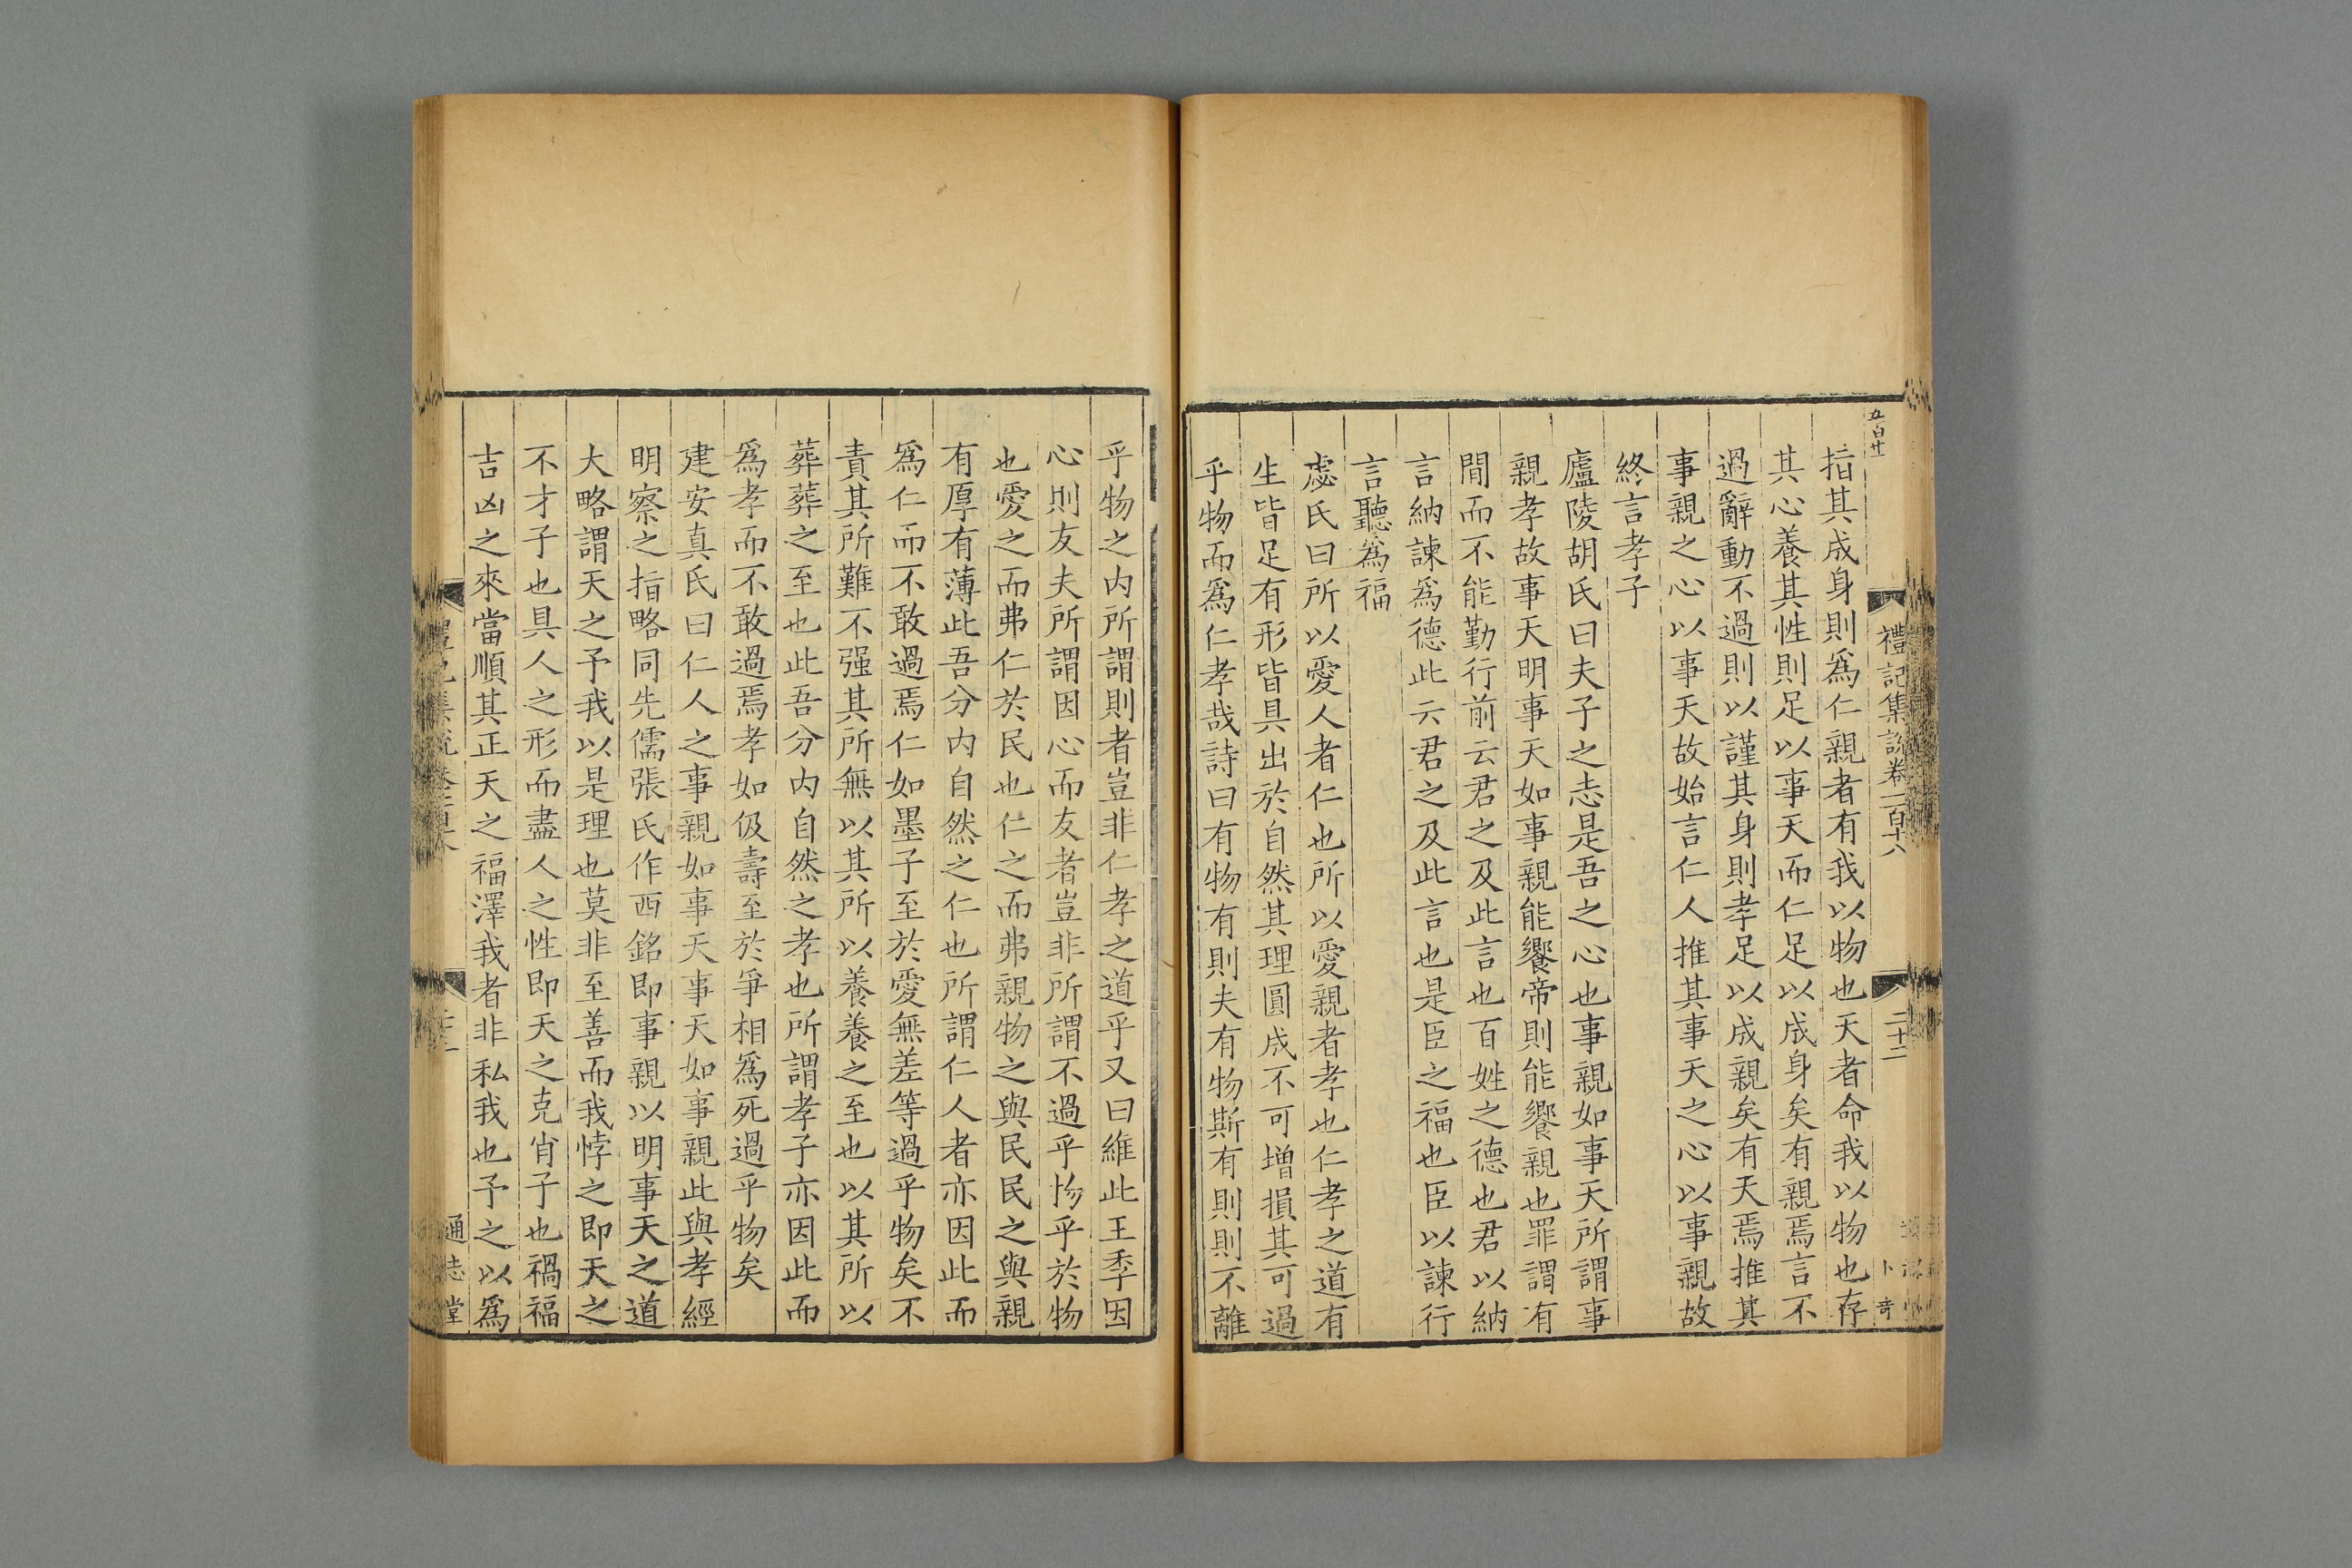 五百廿
禮記集說卷一百十八
二十二
指其成身則為仁親者有我以物也天者命我以物也存
其心養其性則足以事天而仁足以成身矣有親焉言不
過辭動不過則以謹其身則孝足以成親矣有天焉推其
事親之心以事天故始言仁人推其事天之心以事親故
終言孝子
廬陵胡氏曰夫子之志是吾之心也事親如事天所謂事
親孝故事天明事天如事親能饗帝則能饗親也罪謂有
間而不能勤行前云君之及此言也百姓之德也君以納
言納諫為德此云君之及此言也是臣之福也臣以諫行
言聽為福
虙氏曰所以愛人者仁也所以愛親者孝也仁孝之道有
生皆足有形皆具出於自然其理圓成不可增損其可過
乎物而為仁孝哉詩曰有物有則夫有物斯有則則不離
乎物之内所謂則者豈非仁孝之道乎又曰維此王季因
心則友夫所謂因心而友者豈非所謂不過乎物乎於物
也愛之而弗仁於民也仁之而弗親物之與民民之與親
有厚有薄此吾分内自然之仁也所謂仁人者亦因此而
爲仁而不敢過焉仁如墨子至於愛無差等過乎物矣不
責其所難不强其所無以其所以養養之至也以其所以
葬葬之至也此吾分内自然之孝也所謂孝子亦因此而
爲孝而不敢過焉孝如伋壽至於爭相爲死過乎物矣
建安真氏曰仁人之事親如事天事天如事親此與孝經
明察之指略同先儒張氏作西銘即事親以明事天之道
大略謂天之予我以是理也莫非至善而我悖之即天之
不才子也具人之形而盡人之性即天之克肖子也禍福
吉凶之來當順其正天之福澤我者非私我也予之以爲
通志堂